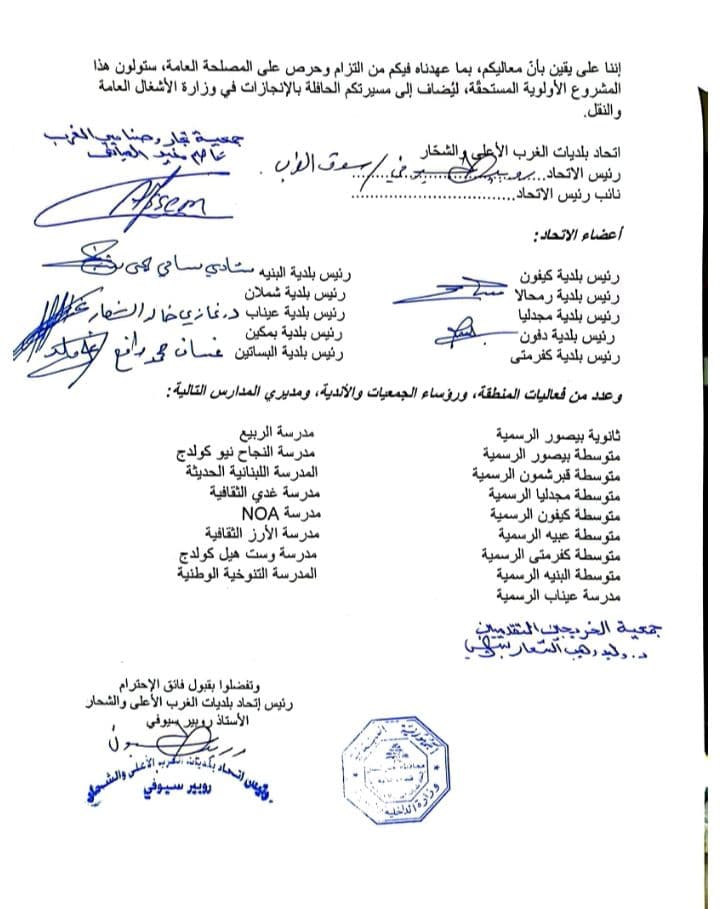 إننا على يقين بأنّ معاليكم، بما عهدناه فيكم من التزام وحرص على المصلحة العامة، ستولون هذا
المشروع الأولوية المستحقّة، ليُضاف إلى مسيرتكم الحافلة بالإنجازات في وزارة الأشغال العامة
والنقل.
جمعية تجار وصناعيي الغرب
اتحاد بلديات الغرب الأعلى والشحّار
رئيس الاتحاد... روبير سيوفي / سوق الغرب
نائب رئيس الاتحاد................................
Assem
أعضاء الاتحاد:
رئيس بلدية كيفون
رئيس بلدية رمحالا
رئيس بلدية مجدليا
رئيس بلدية دفون
رئيس بلدية كفرمتى
رئيس بلدية البنيه شادي سامي يحيى
رئيس بلدية شملان
رئيس بلدية عيناب د. غازي خالد الشعار
رئيس بلدية بمكين
رئيس بلدية البساتين غسان رافع
وعدد من فعاليات المنطقة، ورؤساء الجمعيات والأندية، ومديري المدارس التالية:
ثانوية بيصور الرسمية
متوسطة بيصور الرسمية
متوسطة قبرشمون الرسمية
متوسطة مجدليا الرسمية
متوسطة كيفون الرسمية
متوسطة عبيه الرسمية
متوسطة كفرمتى الرسمية
متوسطة البنيه الرسمية
مدرسة عيناب الرسمية
مدرسة الربيع
مدرسة النجاح نيو كولدج
المدرسة اللبنانية الحديثة
مدرسة غدي الثقافية
مدرسة NOA
مدرسة الأرز الثقافية
مدرسة وست هيل كولدج
المدرسة التنوخية الوطنية
جمعية الخريجين التقدميين
د. وليد وهب الشعار
وتفضلوا بقبول فائق الإحترام
رئيس إتحاد بلديات الغرب الأعلى والشحار
الأستاذ روبير سيوفي
رئيس اتحاد بلديات الغرب الأعلى والشحار
روبير سيوفي
وزارة الداخلية